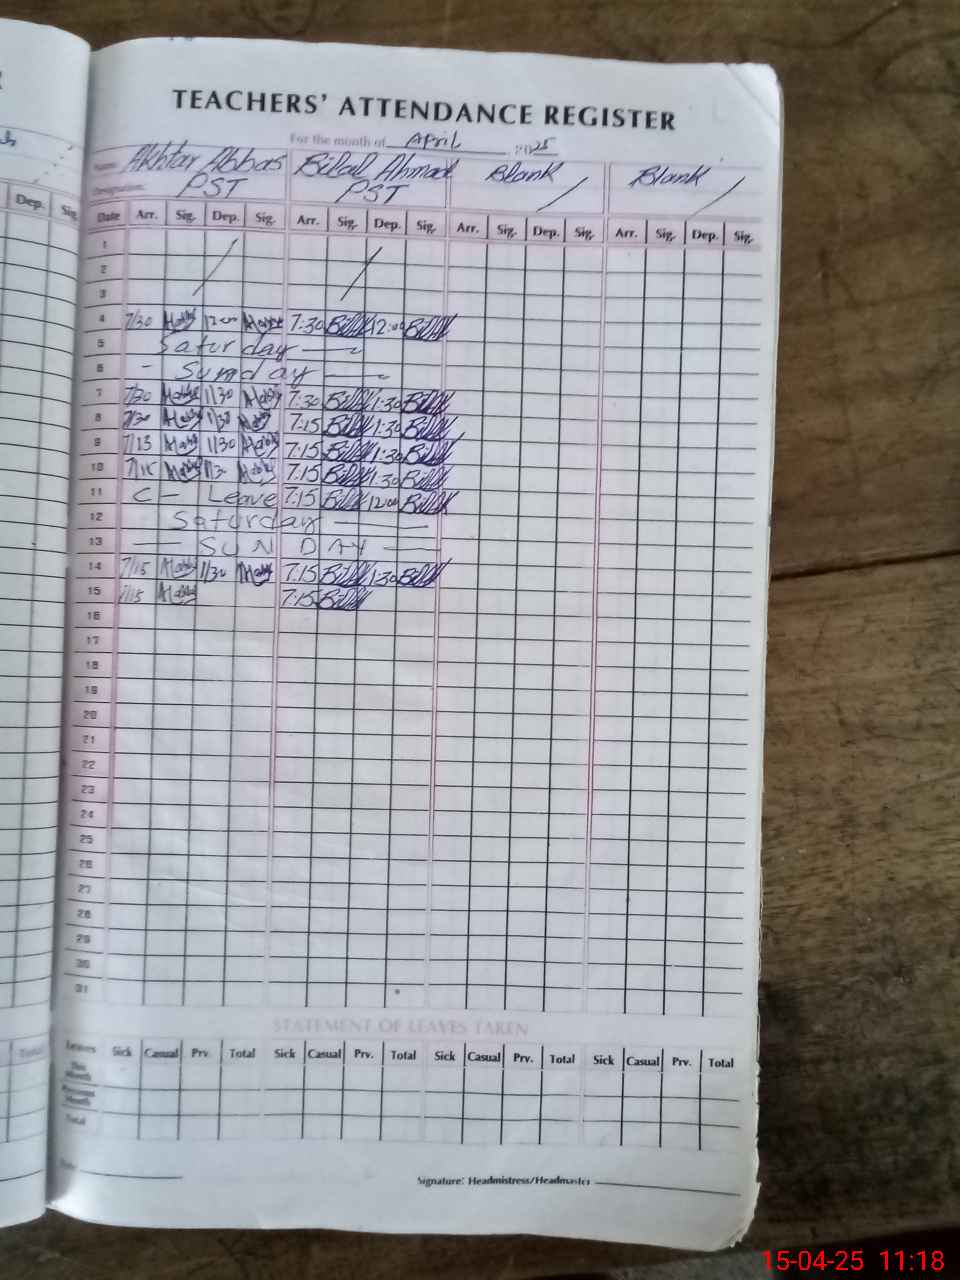 TEACHERS' ATTENDANCE REGISTER
For the month of April 2025
Name: Akhtar Abbas Bilal Ahmad Blank Blank
Designation: PST PST
Dep. Sig.
Date Arr. Sig. Dep. Sig. Arr. Sig. Dep. Sig. Arr. Sig. Dep. Sig. Arr. Sig. Dep. Sig.
1
2
3
4 7/30 12:00 7:30 Bilal 12:00 Bilal
5 Saturday
6 - Sunday
7 7/30 1/30 7:30 Bilal 1:30 Bilal
8 7/30 1/30 7:15 Bilal 1:30 Bilal
9 7/15 1/30 7:15 Bilal 1:30 Bilal
10 7/15 7:15 Bilal 1:30 Bilal
11 C - Leave 7:15 Bilal 12:00 Bilal
12 Saturday
13 SUNDAY
14 7/15 1/30 7:15 Bilal 1:30 Bilal
15 7/15 7:15 Bilal
16
17
18
19
20
21
22
23
24
25
26
27
28
29
30
31
STATEMENT OF LEAVES TAKEN
Total
Leaves Sick Casual Prv. Total Sick Casual Prv. Total Sick Casual Prv. Total Sick Casual Prv. Total
This Month
Previous Month
Total
Signature: Headmistress/Headmaster
15-04-25 11:18